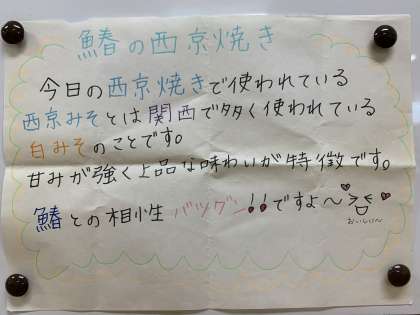 鰆の西京焼き
今日の西京焼きで使われている
西京みそとは関西で多く使われている
白みそのことです。
甘みが強く上品な味わいが特徴です。
鰆との相性 バツグン!!ですよ〜
おいしい〜